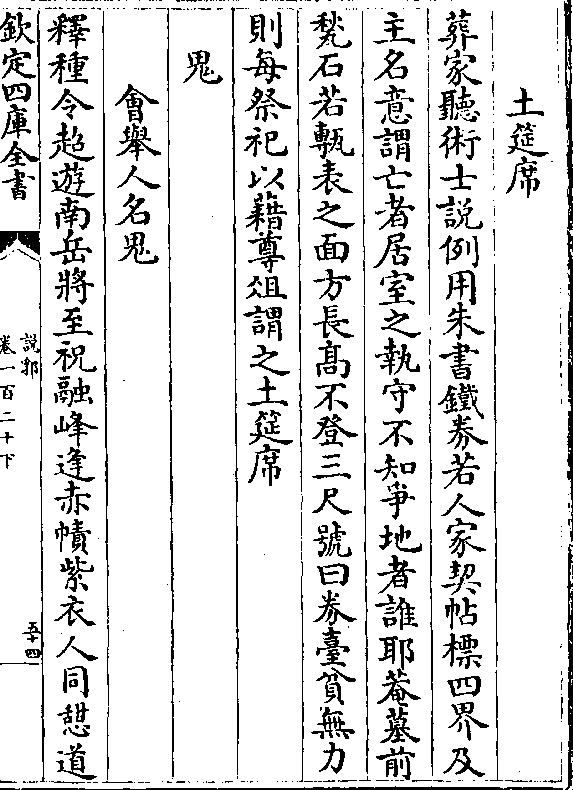 土筵席
葬家聽術士説例用朱書鐵券若人家契帖標四界及
主名意謂亡者居室之執守不知爭地者誰耶菴墓前
甃石若甎表之面方長髙不登三尺號曰券臺貧無力
則每祭祀以藉尊俎謂之土筵席
鬼
會舉人名鬼
釋種令超遊南岳將至祝融峰逢赤幘紫衣人同憇道
欽定四庫全書
説郛
卷一百二十下
五十四